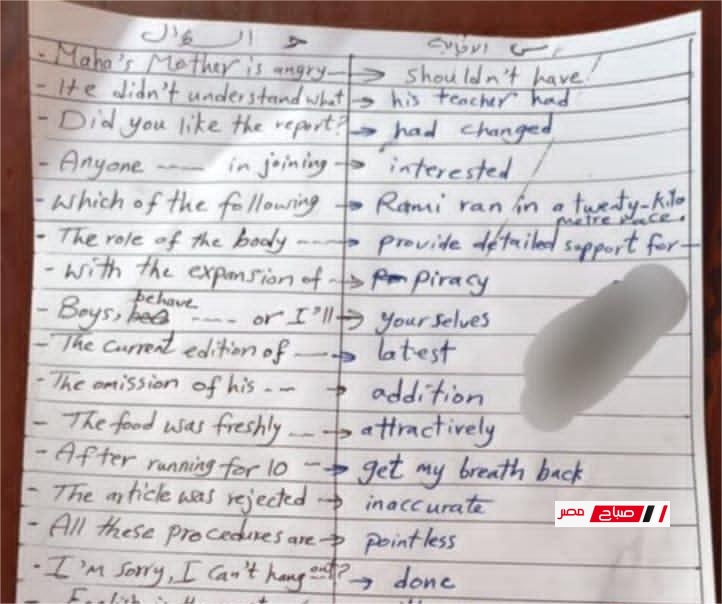 السؤال
- Maha's Mother is angry → shouldn't have
- He didn't understand what → his teacher had
- Did you like the report? → had changed
- Anyone ---- in joining → interested
- which of the following → Rami ran in a twenty-kilo metre race.
- The role of the body ---- → provide detailed support for -
- with the expansion of -- → piracy
- Boys, behave ---- or I'll → yourselves
- The current edition of --- → latest
- The omission of his --- → addition
The food was freshly --- → attractively
- After running for 10 -- → get my breath back
- The article was rejected → inaccurate
- All these procedures are → pointless
- I'm sorry, I can't hang out? → done
صباح مصر